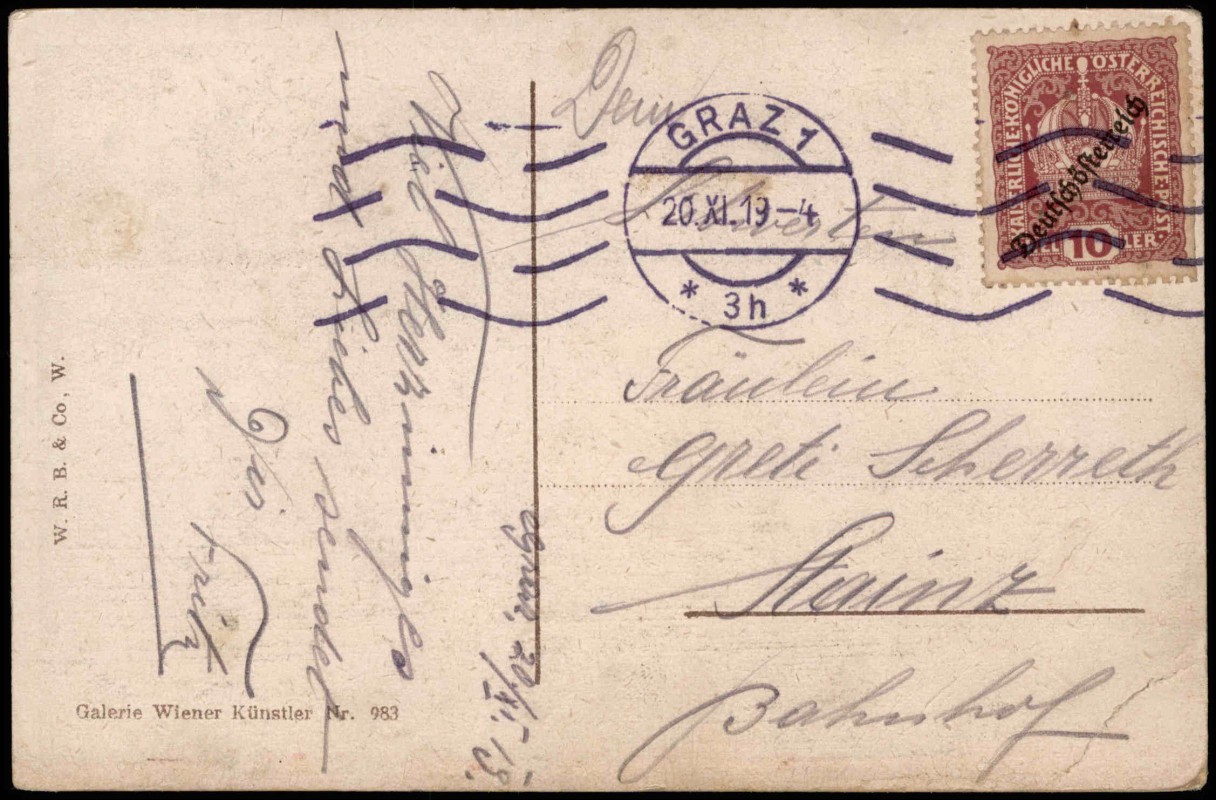 Graz, 20/XI. 19.
Viel Herzinniges
und Liebes sendet
Dir
Fritz
W. R. B. & Co, W.
Galerie Wiener Künstler Nr. 983
GRAZ 1
20.XI.19-4
* 3h *
KAISERLICHE KÖNIGLICHE ÖSTERREICHISCHE POST
Deutschösterreich
10
Fräulein
Greti Scherreth
Stainz
Bahnhof